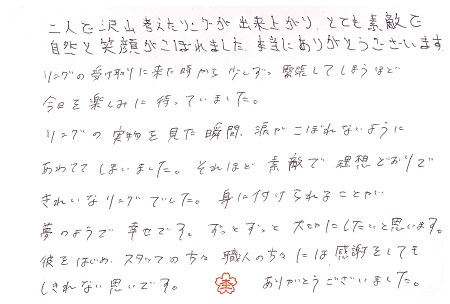 二人で沢山考えたリングが出来上がり、とても素敵で
自然と笑顔がこぼれました。本当にありがとうございます
リングの受け取りに来た時から少しずつ緊張してしまうほど
今日を楽しみに待っていました。
リングの実物を見た瞬間、涙がこぼれないように
あわててしまいました。それほど素敵で理想どおりで
きれいなリングでした。身に付けられることが
夢のようで幸せです。ずっとずっと大切にしたいと思います。
彼をはじめ、スタッフの方々職人の方々には感謝をしても
しきれない思いです。ありがとうございました。